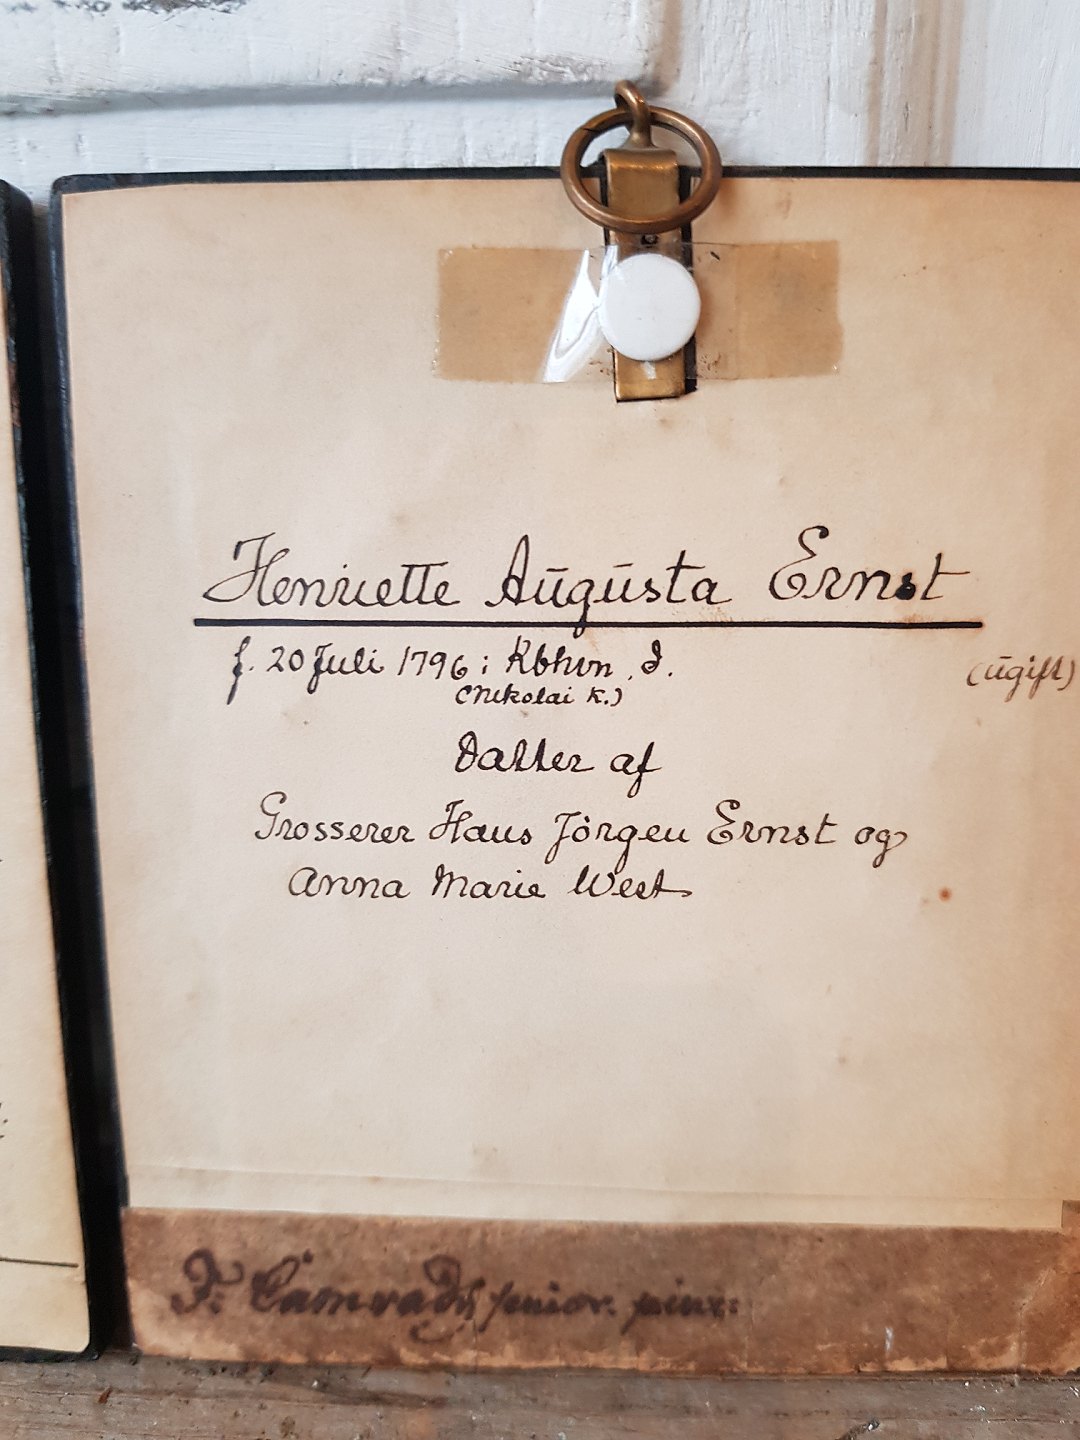 Henriette Augusta Ernst
f. 20 Juli 1796 i Kbhvn, d. (ugift)
(Nikolai K.)
Datter af
Grosserer Hans Jörgen Ernst og
Anna Marie West
F: Camradt junior. pinx: